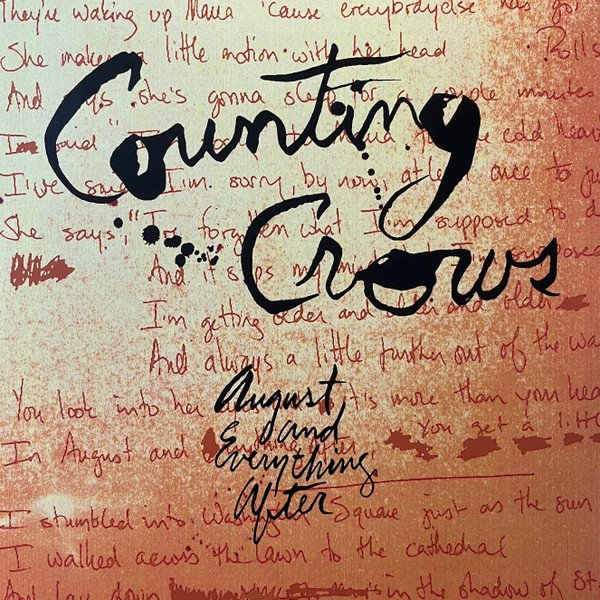 They're waking up Maria 'cause everybody else has
She makes a little motion with her head
Rolls
And says she's gonna sleep for a couple minutes
Counting
I said "I'm to Maria for the cold
I've said I'm sorry, by now, at least once to
Crows
She says, "I've forgotten what I'm supposed to d
And it slips my mind I'm supposed
I'm getting older and older and older
And always a little further out of the wa
August
and
Everything
After
You look into her it's more than your hea
In August and You get a litt
I stumbled into Washington Square just as the sun
I walked across the lawn to the cathedral
And lay down in the shadow of St